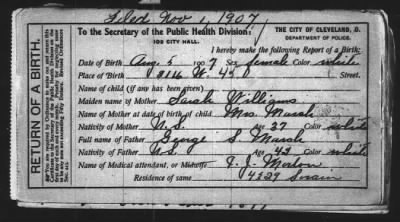 Filed Nov 1, 1907
To the Secretary of the Public Health Division:
102 CITY HALL.
THE CITY OF CLEVELAND, O.
DEPARTMENT OF POLICE.
I hereby make the following Report of a Birth:
Date of Birth Aug. 5 1907 Sex female Color white
Place of Birth 2116 W. 45 Street.
Name of child (if any has been given)
Maiden name of Mother Sarah Williams
Name of Mother at date of birth of child Mrs. Marsh
Nativity of Mother U.S. Age 37 Color white
Full name of Father George S. Marsh
Nativity of Father U.S. Age 43 Color white
Name of Medical attendant, or Midwife J. J. Morton
Residence of same 4239
RETURN OF A BIRTH.